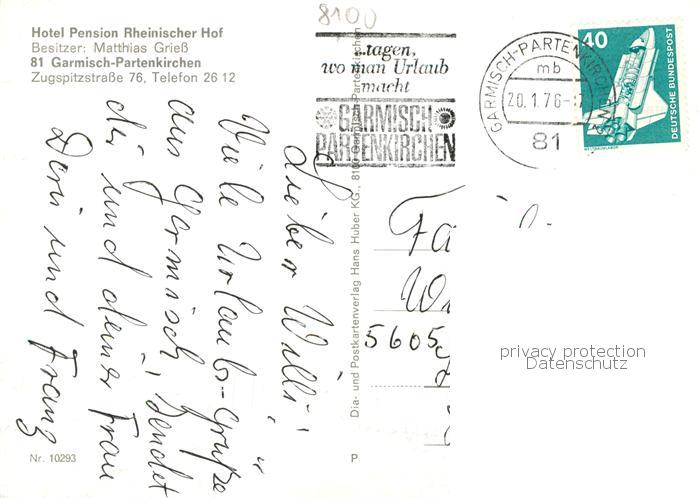 Hotel Pension Rheinischer Hof
Besitzer: Matthias Grieß
81 Garmisch-Partenkirchen
Zugspitzstraße 76, Telefon 26 12
8100
...tagen,
wo man Urlaub
macht
GARMISCH
PARTENKIRCHEN
GARMISCH-PARTENKIRCHEN
mb
20.1.76
81
40
DEUTSCHE BUNDESPOST
WELTRAUMLABOR
Lieber Willi!
Viele Urlaubs-Grüße
aus Garmisch sendet
dir und deiner Frau
Doris und Franz
Dia- und Postkartenverlag Hans Huber KG., 8100 Garmisch-Partenkirchen
Fa
Wi
5605
privacy protection
Datenschutz
Nr. 10293
P